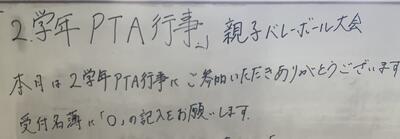 「2学年PTA行事」親子バレーボール大会
本日は2学年PTA行事にご参加いただきありがとうございます
受付名簿に「○」の記入をお願いします.